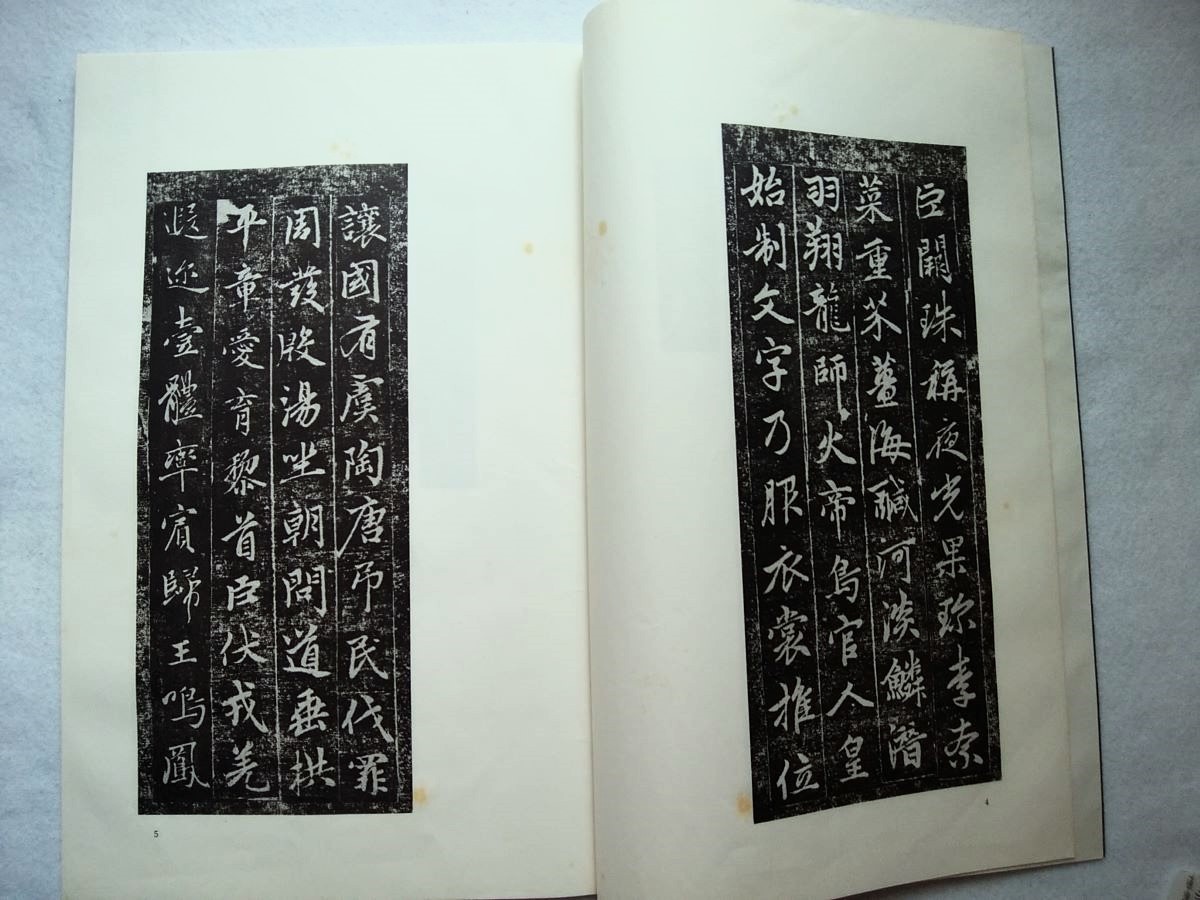 巨闕珠稱夜光果珎李柰
菜重芥薑海醎河淡鱗潛
羽翔龍師火帝鳥官人皇
始制文字乃服衣裳推位
4
讓國有虞陶唐吊民伐罪
周發殷湯坐朝問道垂拱
平章愛育黎首臣伏戎羌
遐迩壹體率賓歸王鳴鳳
5